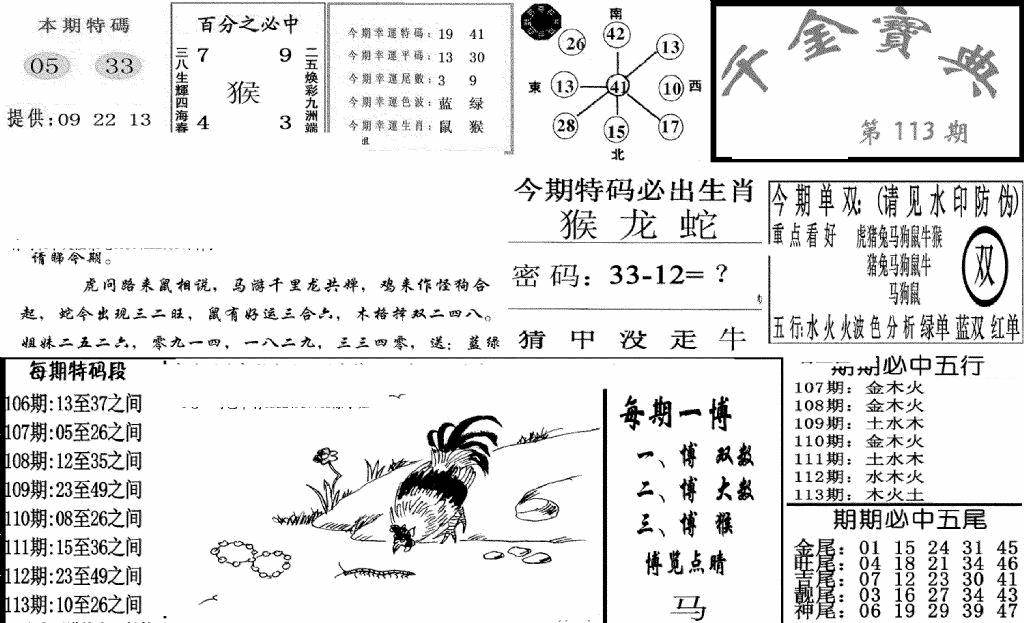 本期特碼
05 33
提供:09 22 13
百分之必中
7 9
三八生輝四海春
猴
二五焕彩九洲端
4 3
今期幸運特碼: 19 41
今期幸運平碼: 13 30
今期幸運尾數: 3 9
今期幸運色波: 蓝 绿
今期幸運生肖: 鼠 猴
南
42
26 13
東 13 41 10 西
28 15 17
北
千金寶典
第113期
今期特码必出生肖
猴 龙 蛇
密码: 33-12= ?
猜甲没走牛
今期单双:(请见水印防伪)
重点看好 虎猪兔马狗鼠牛猴
猪兔马狗鼠牛
马狗鼠
双
五行:水火火波色分析绿单蓝双红单
请睇今期。
虎问路来鼠相说，马游千里龙共婵，鸡来作怪狗合
起，蛇今出现三二旺，鼠有好运三合六，木格择双二四八。
姐妹二五二六，零九一四，一八二九，三三四零，送：蓝绿
每期特码段
106期:13至37之间
107期:05至26之间
108期:12至35之间
109期:23至49之间
110期:08至26之间
111期:15至36之间
112期:23至49之间
113期:10至26之间
每期一博
一、博 双数
二、博 大数
三、博 猴
博览点睛
马
期期必中五行
107期: 金木火
108期: 金木火
109期: 土水木
110期: 金木火
111期: 土水木
112期: 水木火
113期: 木火土
期期必中五尾
金尾: 01 15 24 31 45
旺尾: 04 18 21 34 46
吉尾: 07 12 23 30 41
靓尾: 03 16 27 34 43
神尾: 06 19 29 39 47